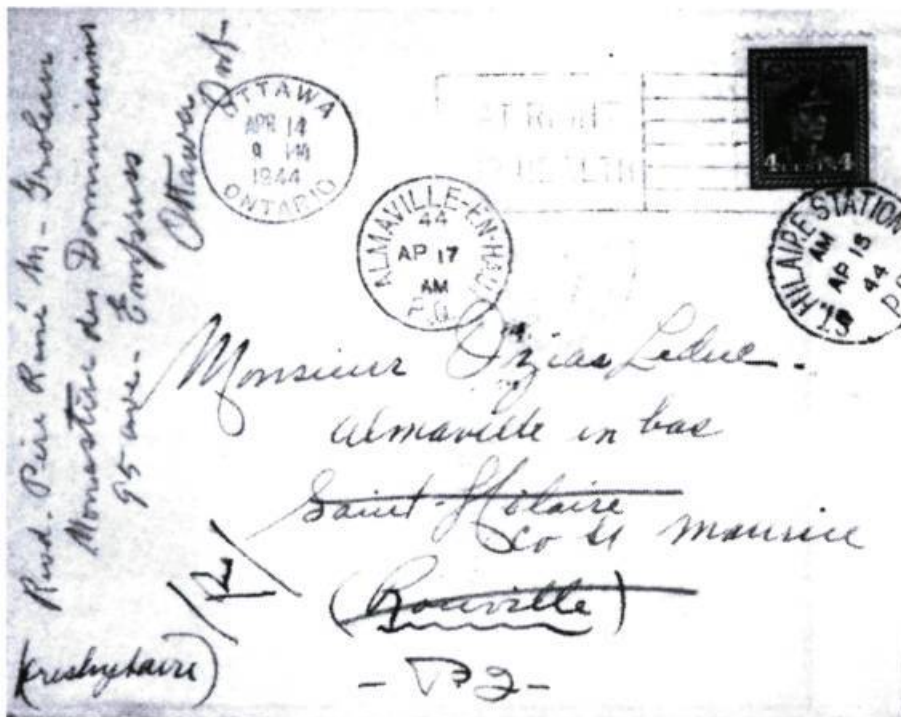 Révd. Père René M. Groleau
Monastère des Dominicains
95 ave. Empress
Ottawa Ont-
OTTAWA
APR 14
9 PM
1944
ONTARIO
ALMAVILLE-EN-HAUT
44
AP 17
AM
P.Q.
AT
4 4
ST HILAIRE STATION
AM
AP 15
44
P.Q.
Monsieur Ozias Leduc-
Almaville en bas
Saint-Hilaire
Co St Maurice
(Rouville)
- P2 -
(presbytaire)